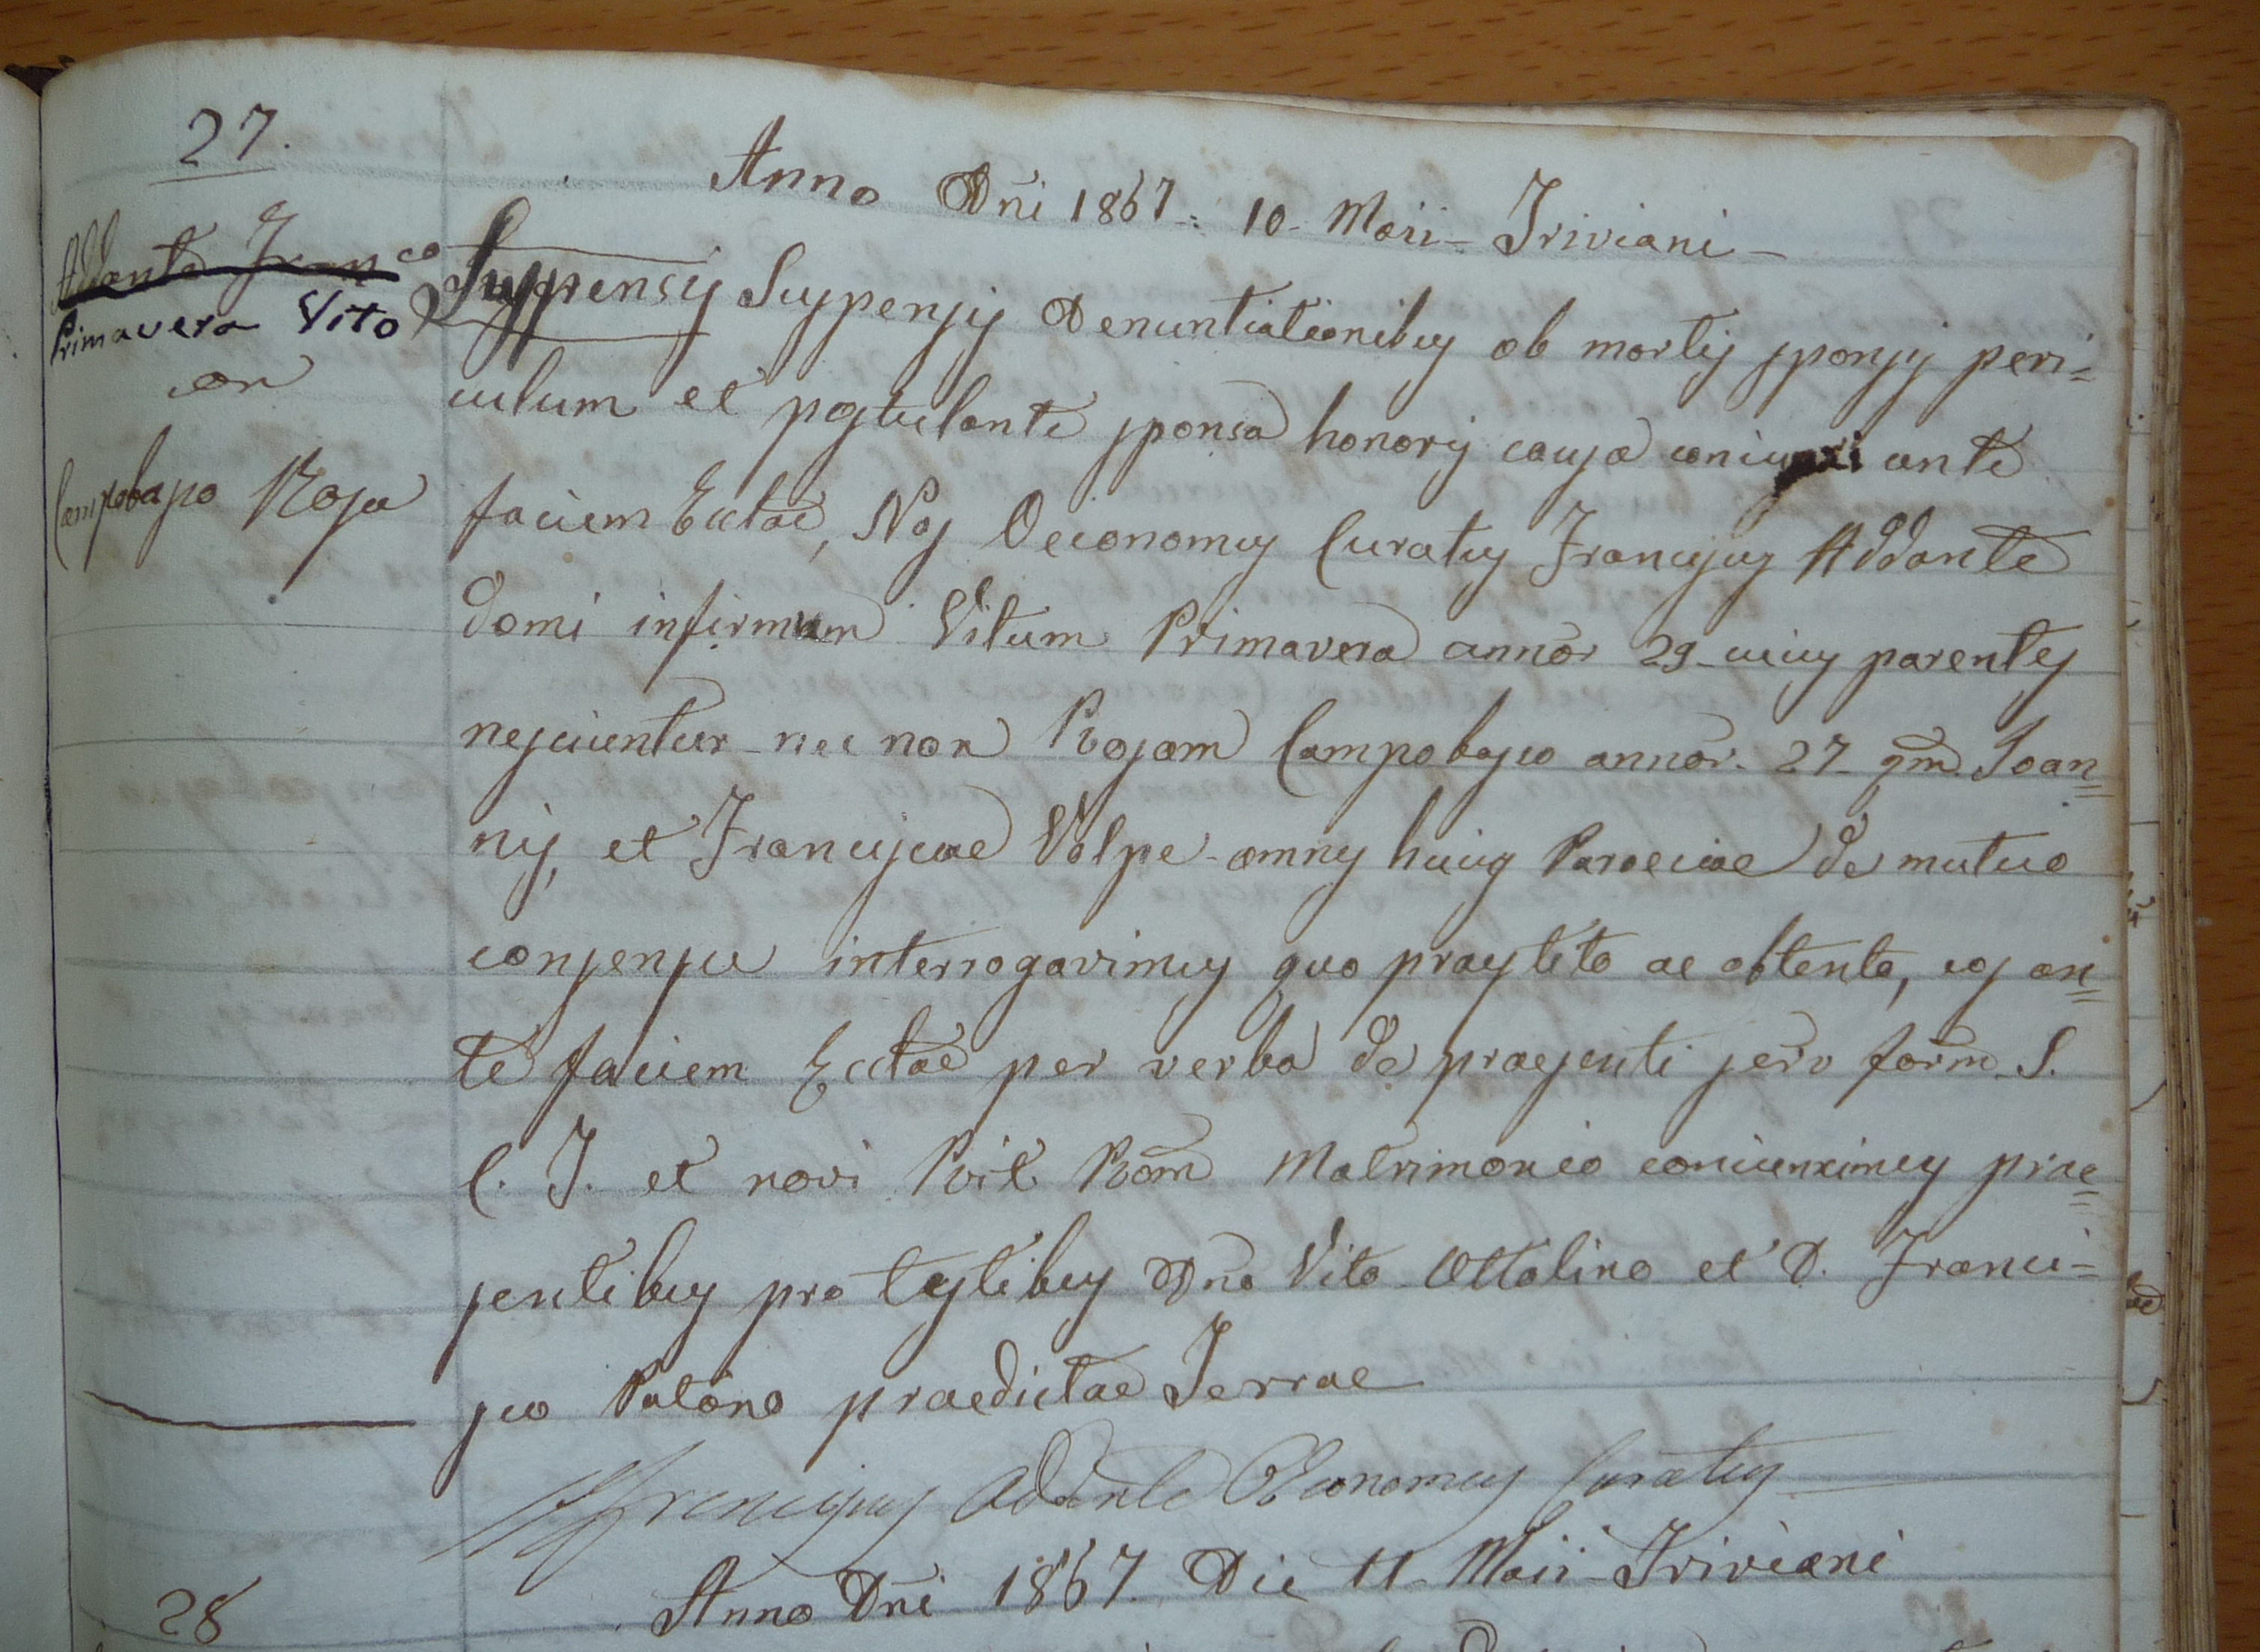 27.
Anno Dñi 1867 = 10 - Maii - Triviani -
Addante Fran co
Primavera Vito
con
Campobasso Rosa
Suspensis Suspensis Denuntiationibus ob mortis sponsi peri=
culum et postulante sponsa honoris causa coniungi ante
faciem Ecclae, Nos Oeconomus Curatus Franciscus Addante
domi infirmum Vitum Primavera annor 29 - cuius parentes
nesciuntur - nec non Rosam Campobasso annor. 27 - qm. Joan=
nis, et Franciscae Volpe - omnes huius Paroeciae de mutuo
consensu interrogavimus quo praestito ac obtento, eos an=
te faciem Ecclae per verba de praesenti serv form. S.
C. T. et novi Rit. Rom Matrimonio coniunximus prae=
sentibus pro testibus Dno Vito Ottolino et D. Franci=
sco Patóno praedictae Terrae
Franciscus Addante Oeconomus Curatus
28
Anno Dñi 1867. Die 11 - Maii - Triviani